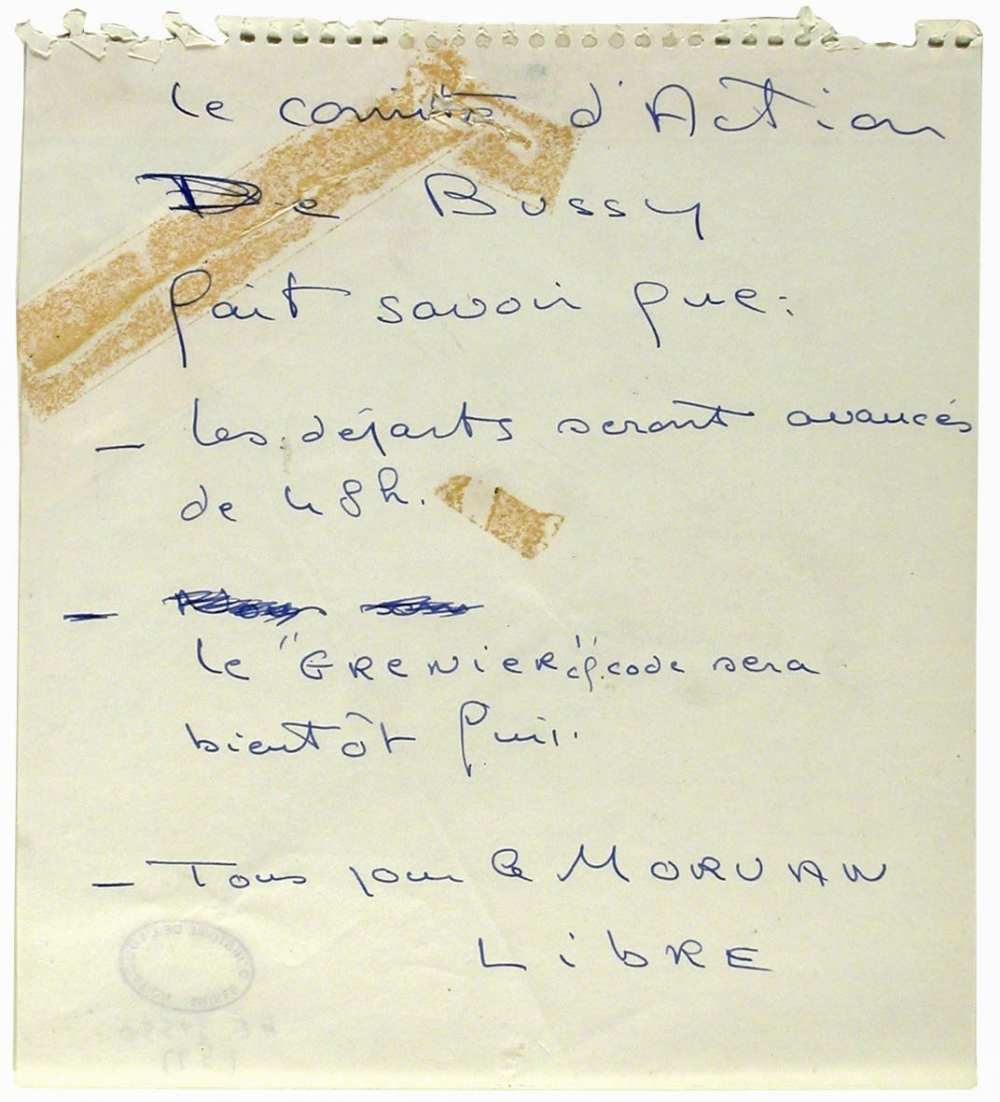 Le comité d'Action
De Bussy
fait savoir que:
- Les départs seront avancés
de 48h.
-
Le "GRENIER" code sera
bientôt fini.
- Tous pour le MORVAN
LibRE